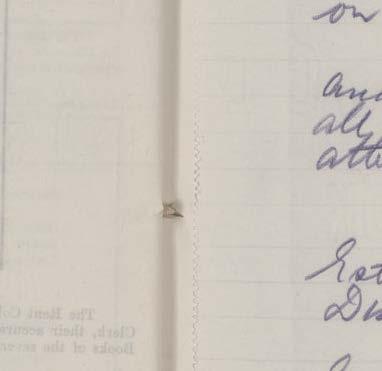 on
and
all
atte
Est
Dis
The Rent Col
Clerk, their accura
Books of the sever